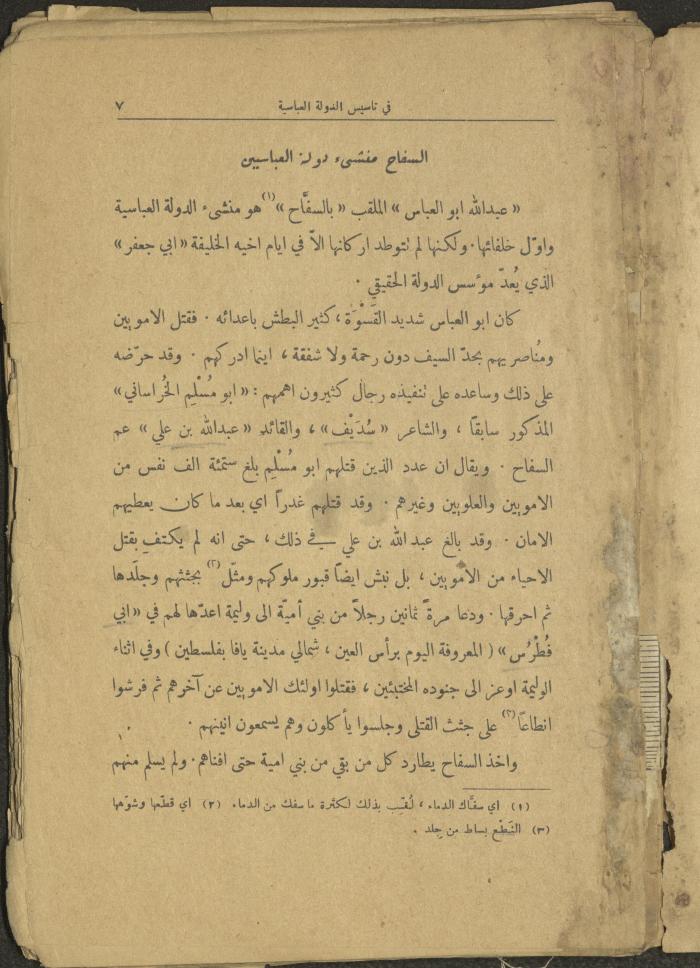 في تاسيس الدولة العباسية ٧
السفاح منشىء دولة العباسيين
« عبدالله ابو العباس » الملقب « بالسفَّاح »(١) هو منشىء الدولة العباسية
واوّل خلفائها . ولكنها لم تتوطد اركانها الاّ في ايام اخيه الخليفة « ابي جعفر »
الذي يُعدّ موّسس الدولة الحقيقي .
كان ابو العباس شديد القَسْوَة ، كثير البطش باعدائه . فقتل الامويين
ومُناصريهم بحدّ السيف دون رحمة ولا شفقة ، اينما ادركهم . وقد حرّضه
على ذلك وساعده على تنفيذه رجال كثيرون اهمهم : « ابو مُسْلِم الخُراساني »
المذكور سابقاً ، والشاعر « سُدَيْف » ، والقائد « عبدالله بن علي » عم
السفاح . ويقال ان عدد الذين قتلهم ابو مُسْلِم بلغ ستمئة الف نفس من
الامويين والعلويين وغيرهم . وقد قتلهم غدراً اي بعد ما كان يعطيهم
الامان . وقد بالغ عبد الله بن علي في ذلك ، حتى انه لم يكتفِ بقتل
الاحياء من الأمويين ، بل نبش ايضاً قبور ملوكهم ومثّل(٢) بجثثهم وجلَدها
ثم احرقها . ودعا مرةً ثمانين رجلاً من بني أميّة الى وليمة اعدّها لهم في « ابي
فُطْرُس » ( المعروفة اليوم برأس العين ، شمالي مدينة يافا بفلسطين ) وفي اثناء
الوليمة اوعز الى جنوده المختبئين ، فقتلوا اولئك الامويين عن آخرهم ثم فرشوا
انطاعاً(٣) على جثث القتلى وجلسوا يأكلون وهم يسمعون انينهم .
واخذ السفاح يطارد كل من بقي من بني امية حتى افناهم . ولم يسلم منهم
(١) اي سفَّاك الدماء ، لُقّب بذلك لكثرة ما سفك من الدماء . (٢) اي قطّعها وشوّهها
(٣) النَطْع بساط من جِلد .